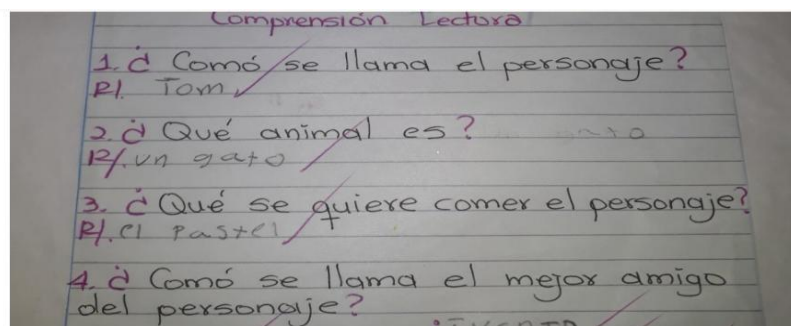 Comprensión Lectora
1. ¿ Comó se llama el personaje?
R/. Tom
2. ¿ Qué animal es?
R/. un gato
3. ¿ Qué se quiere comer el personaje?
R/. el Pastel
4. ¿ Comó se llama el mejor amigo
del personaje?